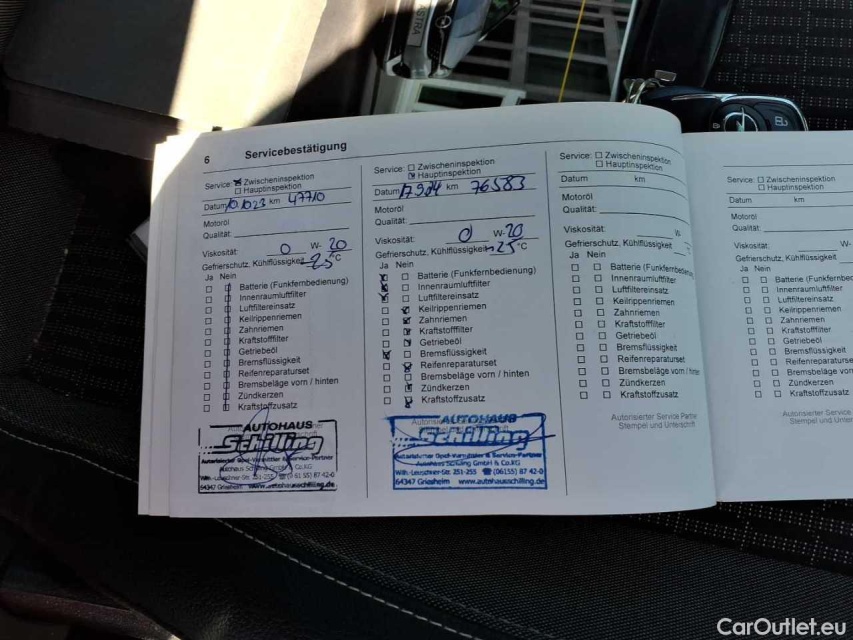 ASTRA
6 Servicebestätigung
Service: ☒ Zwischeninspektion
☐ Hauptinspektion
Datum 10.10.23 km 47710
Motoröl
Qualität:
Viskosität: 0 W- 20
Gefrierschutz, Kühlflüssigkeit -25 °C
Ja Nein
Batterie (Funkfernbedienung)
Innenraumluftfilter
Luftfiltereinsatz
Keilrippenriemen
Zahnriemen
Kraftstofffilter
Getriebeöl
Bremsflüssigkeit
Reifenreparaturset
Bremsbeläge vorn / hinten
Zündkerzen
Kraftstoffzusatz
AUTOHAUS
Schilling
Autorisierter Opel-Vermittler & Service-Partner
Autohaus Schilling GmbH & Co.KG
Wilh.-Leuschner-Str. 251-255 ☎ (06155) 87 42-0
64347 Griesheim www.autohausschilling.de
Service: ☐ Zwischeninspektion
☒ Hauptinspektion
Datum km 76583
Motoröl
Qualität:
Viskosität: 0 W- 20
Gefrierschutz, Kühlflüssigkeit -25 °C
Ja Nein
Batterie (Funkfernbedienung)
Innenraumluftfilter
Luftfiltereinsatz
Keilrippenriemen
Zahnriemen
Kraftstofffilter
Getriebeöl
Bremsflüssigkeit
Reifenreparaturset
Bremsbeläge vorn / hinten
Zündkerzen
Kraftstoffzusatz
AUTOHAUS
Schilling
Autorisierter Opel-Vermittler & Service-Partner
Autohaus Schilling GmbH & Co.KG
Wilh.-Leuschner-Str. 251-255 ☎ (06155) 87 42-0
64347 Griesheim www.autohausschilling.de
Service: ☐ Zwischeninspektion
☐ Hauptinspektion
Datum km
Motoröl
Qualität:
Viskosität: W-
Gefrierschutz, Kühlflüssigkeit
Ja Nein
Batterie (Funkfernbedienung
Innenraumluftfilter
Luftfiltereinsatz
Keilrippenriemen
Zahnriemen
Kraftstofffilter
Getriebeöl
Bremsflüssigkeit
Reifenreparaturset
Bremsbeläge vorn / hinten
Zündkerzen
Kraftstoffzusatz
Autorisierter Service Partner
Stempel und Unterschrift
Service: ☐ Zwischeninspektion
☐ Hauptinspektion
Datum km
Motoröl
Qualität:
Viskosität: W-
Gefrierschutz, Kühlflüssigkeit
Ja Nein
Batterie (Funkfernbed
Innenraumluftfilter
Luftfiltereinsatz
Keilrippenriemen
Zahnriemen
Kraftstofffilter
Getriebeöl
Bremsflüssigkeit
Reifenreparaturse
Bremsbeläge vorn
Zündkerzen
Kraftstoffzusatz
Autorisierter Service
Stempel und Unters
CarOutlet.eu